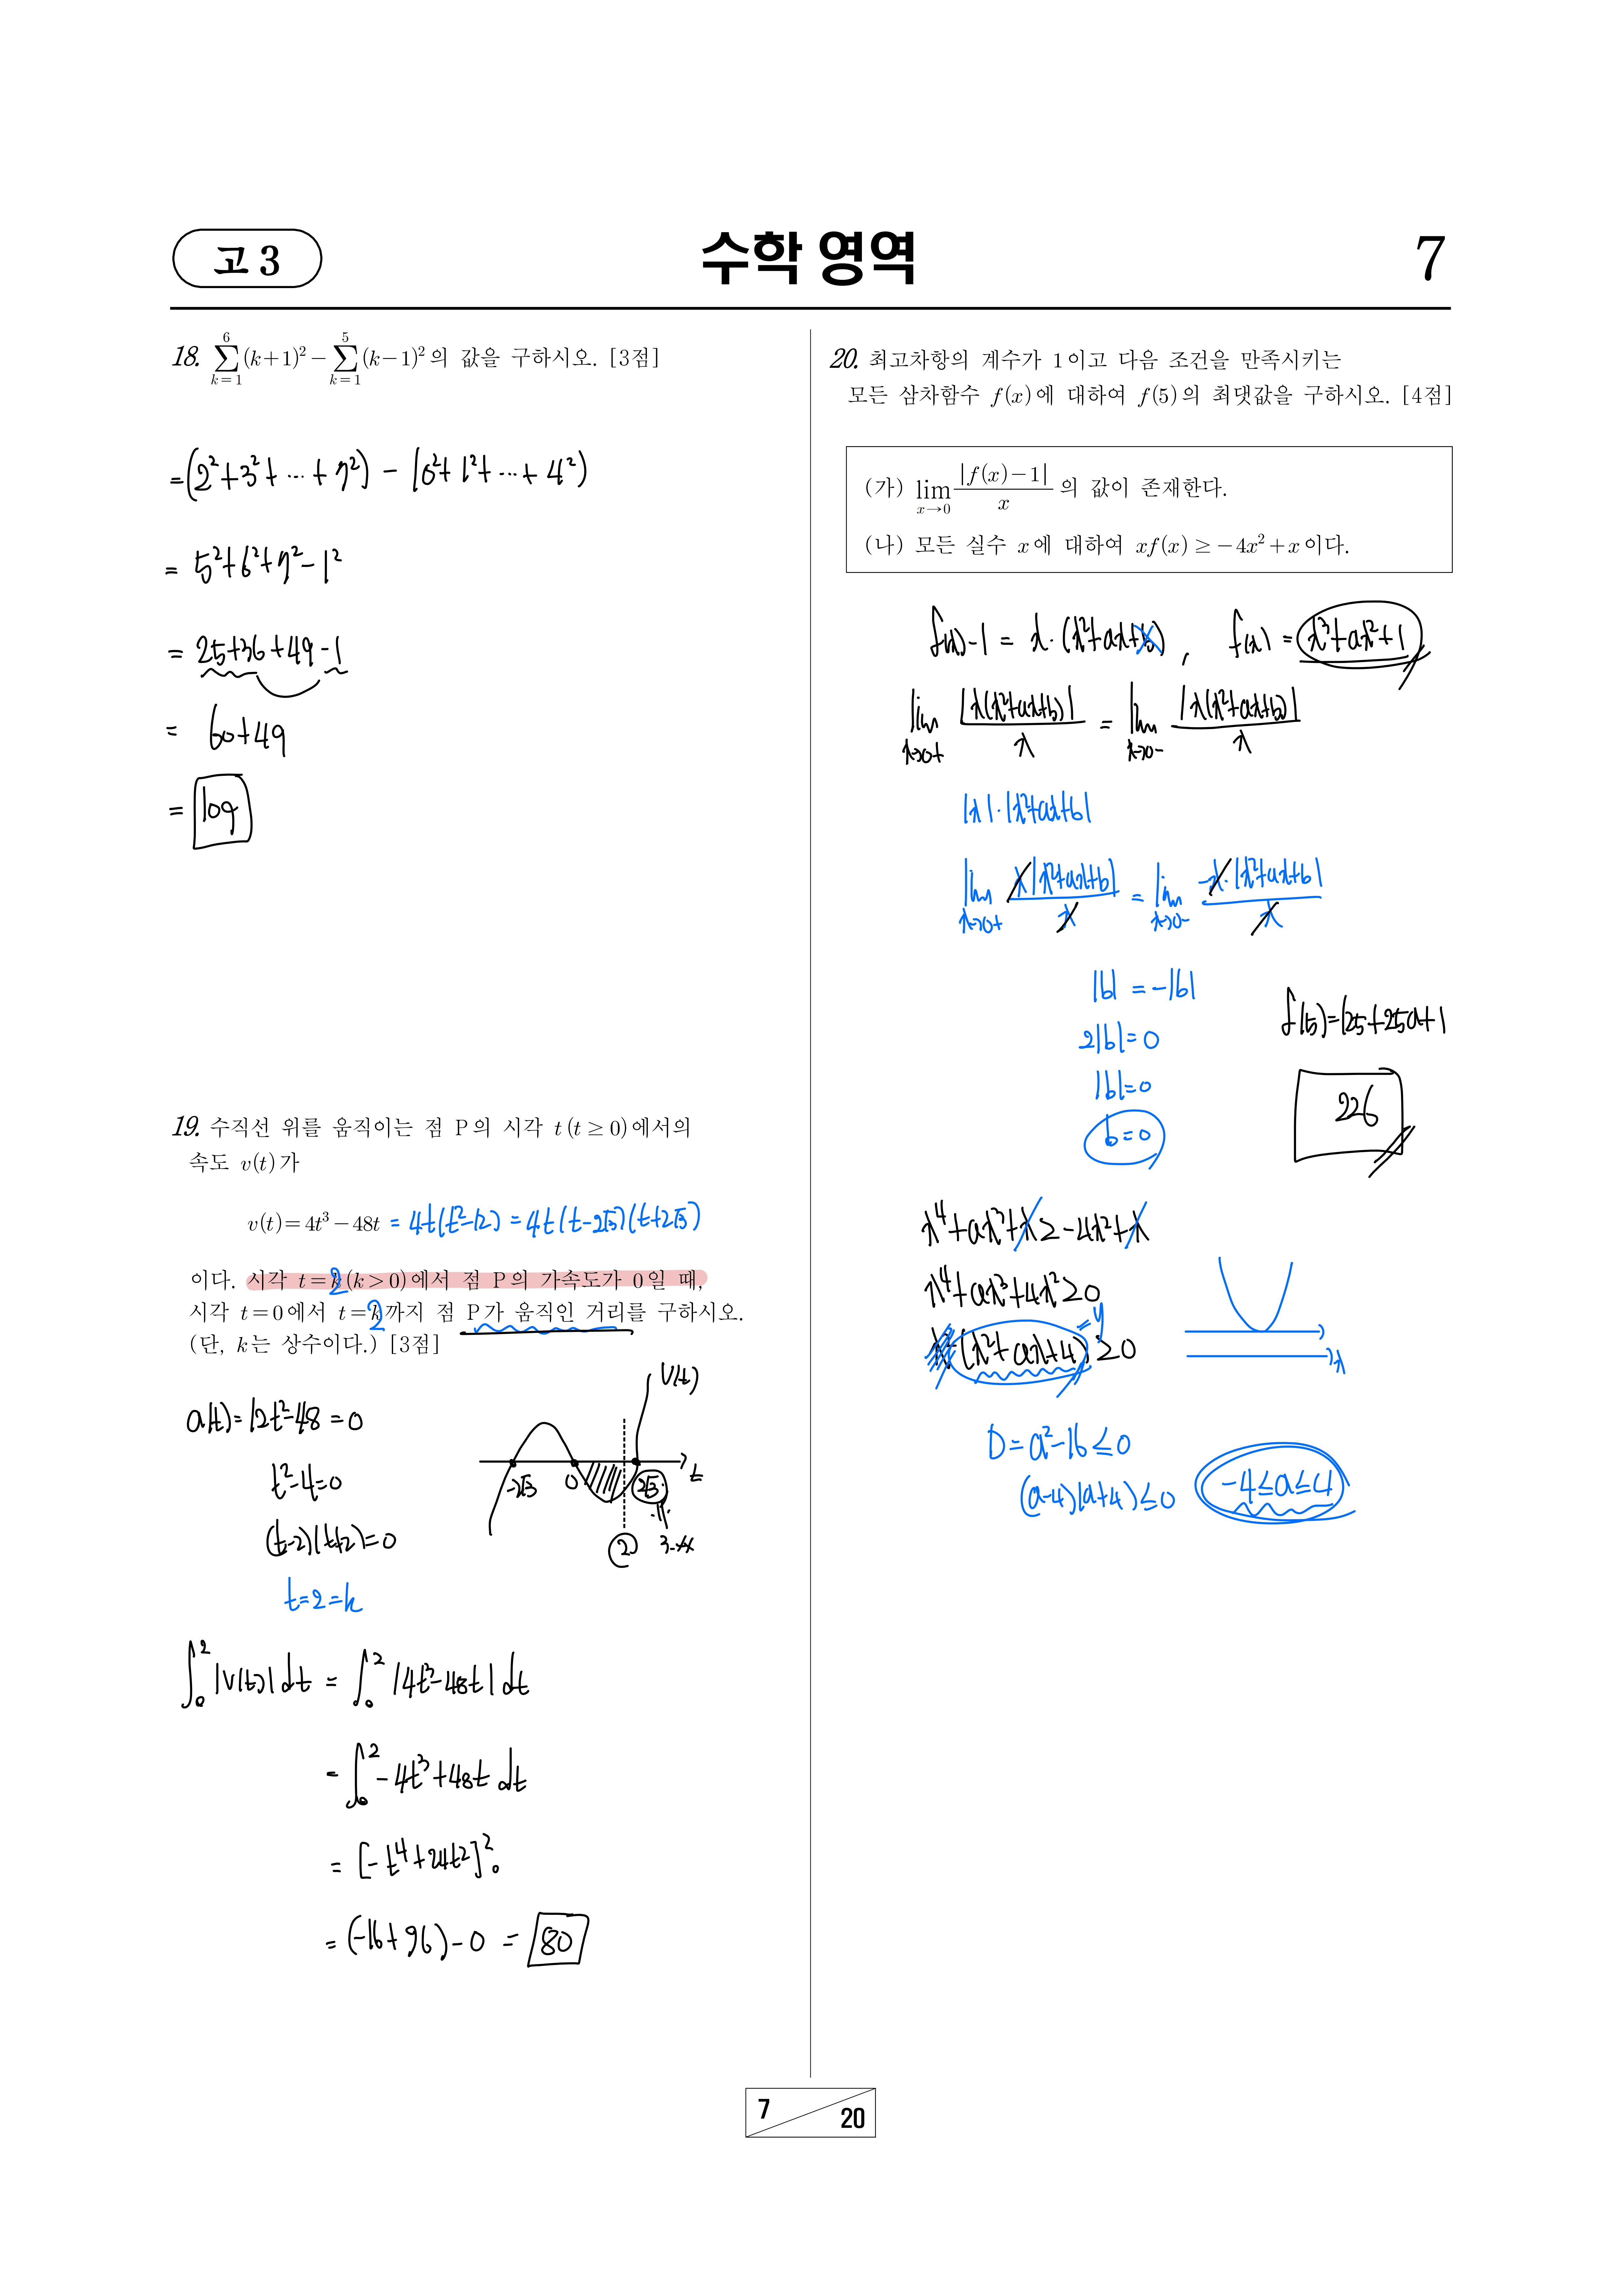 고 3
수학 영역
7
18. \sum_{k=1}^{6}(k+1)^2 - \sum_{k=1}^{5}(k-1)^2 의 값을 구하시오. [3점]
=(2²+3²+ ⋯ + 7²) - (0²+1²+ ⋯ + 4²)
= 5²+6²+7²-1²
= 25+36+49-1
= 60+49
= 109
19. 수직선 위를 움직이는 점 P의 시각 t (t ≥ 0)에서의
속도 v(t)가
v(t) = 4t³ - 48t = 4t(t²-12) = 4t(t-2√3)(t+2√3)
이다. 시각 t = k (k > 0)에서 점 P의 가속도가 0일 때,
2
시각 t = 0에서 t = k까지 점 P가 움직인 거리를 구하시오.
2
(단, k는 상수이다.) [3점]
a(t) = 12t²-48 = 0
t²-4=0
(t-2)(t+2)=0
t=2=k
V(t)
-2√3 0 2√3 t
2 3.xx
∫₀² |v(t)| dt = ∫₀² |4t³-48t| dt
= ∫₀² -4t³+48t dt
= [-t⁴+24t²]²₀
= (-16+96) - 0 = 80
20. 최고차항의 계수가 1이고 다음 조건을 만족시키는
모든 삼차함수 f(x)에 대하여 f(5)의 최댓값을 구하시오. [4점]
(가) \lim_{x→0} \frac{|f(x)-1|}{x} 의 값이 존재한다.
(나) 모든 실수 x에 대하여 xf(x) ≥ -4x² + x이다.
f(x)-1 = x·(x²+ax+b), f(x) = x³+ax²+1
\lim_{x→0+} \frac{|x(x²+ax+b)|}{x} = \lim_{x→0-} \frac{|x(x²+ax+b)|}{x}
|x|·|x²+ax+b|
\lim_{x→0+} \frac{x|x²+ax+b|}{x} = \lim_{x→0-} \frac{-x·|x²+ax+b|}{x}
|b| = -|b|
2|b| = 0
|b|=0
b=0
f(5)=125+25a+1
226
x⁴+ax³+x ≥ -4x²+x
x⁴+ax³+4x² ≥ 0
x²(x²+ax+4) ≥ 0
=y
x
D = a²-16 ≤ 0
(a-4)(a+4) ≤ 0
-4≤a≤4
7
20